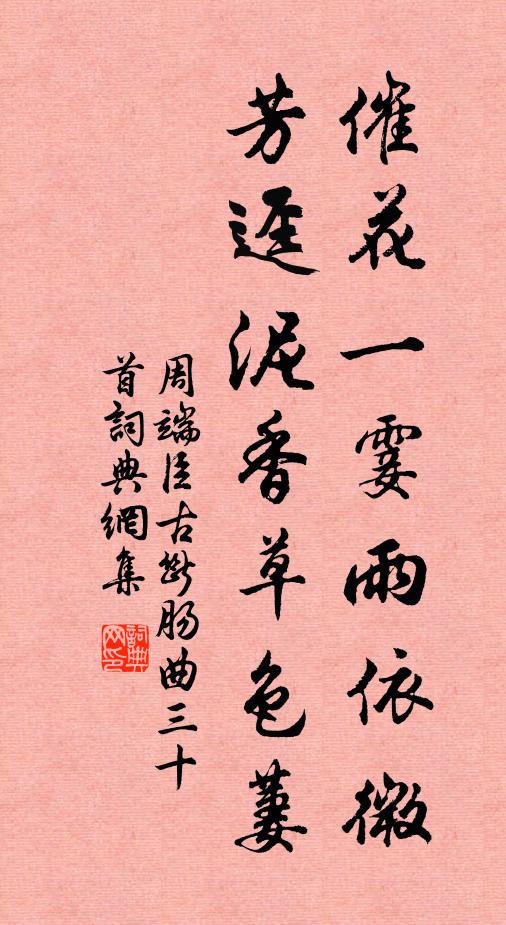 催花一霎雨依微
芳逕泥香草色萋
周端臣古斷肠曲三十
首詞典網集
詞典网印